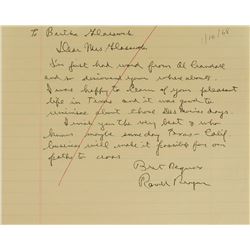 1/10/68
To Bertha
Dear Mrs
I've just had word from Al Crandall
and so discovered your where abouts.
I was happy to learn of your pleasant
life in Texas and it was good to
reminisce about those Des Moines days.
I wish you the very best & who
knows maybe someday Texas - Calif.
business will make it possible for our
paths to cross
Best Regards
Ronald Reagan